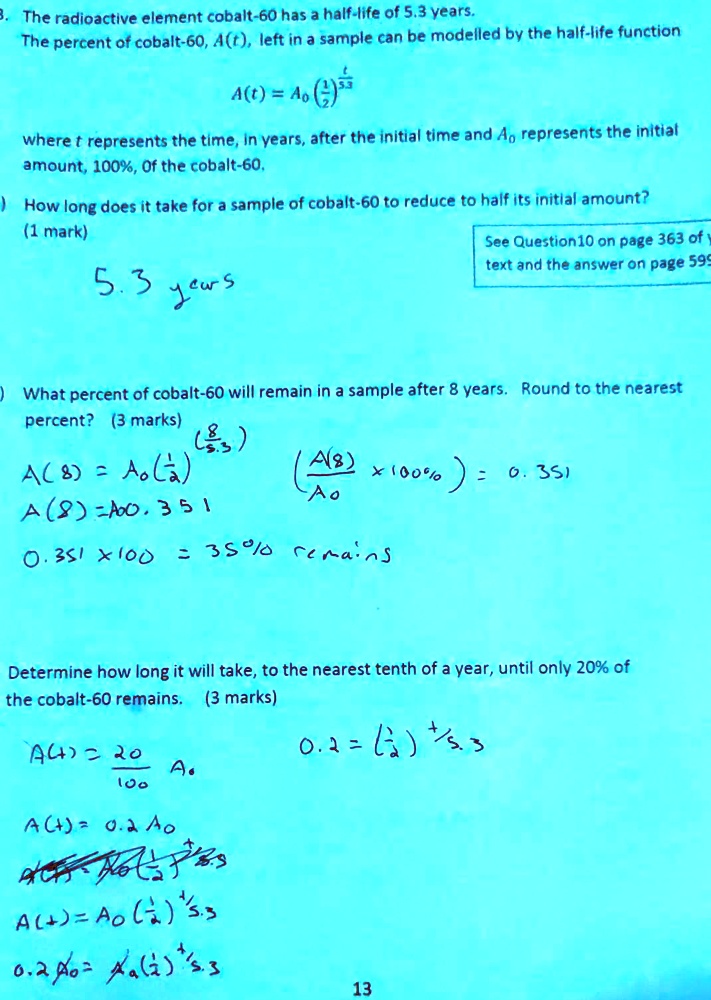 3. The radioactive element cobalt-60 has a half-life of 5.3 years.
The percent of cobalt-60, A(t), left in a sample can be modelled by the half-life function
A(t) = A₀ (1/2)^(t/5.3)
where t represents the time, in years, after the initial time and A₀ represents the initial
amount, 100%, Of the cobalt-60.
) How long does it take for a sample of cobalt-60 to reduce to half its initial amount?
(1 mark)
See Question10 on page 363 of
text and the answer on page 599
5.3 years
) What percent of cobalt-60 will remain in a sample after 8 years. Round to the nearest
percent? (3 marks)
A(8) = A₀(1/2)^(8/5.3)
(A(8)/A₀ × 100%) = 0.351
A(8) = A₀0.351
0.351 × 100 = 35% remains
Determine how long it will take, to the nearest tenth of a year, until only 20% of
the cobalt-60 remains. (3 marks)
A(t) = 20/100 A₀
0.2 = (1/2)^t/5.3
A(t) = 0.2 A₀
A(t) = A₀ (1/2)^t/5.3
0.2 A₀ = A₀(1/2)^t/5.3
13